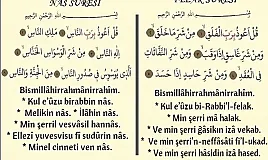 NAS SURESİ
بِسْمِ اللَّهِ الرَّحْمَٰنِ الرَّحِيمِ
قُلْ أَعُوذُ بِرَبِّ النَّاسِ
مَلِكِ النَّاسِ
إِلَٰهِ النَّاسِ
مِنْ شَرِّ الْوَسْوَاسِ الْخَنَّاسِ
الَّذِي يُوَسْوِسُ فِي صُدُورِ النَّاسِ
مِنَ الْجِنَّةِ وَالنَّاسِ
Bismillâhirrahmânirrahîm.
* Kul e'ûzu birabbin nâs.
* Melikin nâs. * İlâhin nâs.
* Min şerril vesvâsil hannâs.
* Ellezî yuvesvisu fî sudûrin nâs.
* Minel cinneti ven nâs.
FELAK SURESİ
بِسْمِ اللَّهِ الرَّحْمَٰنِ الرَّحِيمِ
قُلْ أَعُوذُ بِرَبِّ الْفَلَقِ
مِنْ شَرِّ مَا خَلَقَ
وَمِنْ شَرِّ غَاسِقٍ إِذَا وَقَبَ
وَمِنْ شَرِّ النَّفَّاثَاتِ
فِي الْعُقَدِ
وَمِنْ شَرِّ حَاسِدٍ إِذَا حَسَدَ
Bismillâhirrahmânirrahîm.
* Kul e'ûzu bi-Rabbi'l-felak.
* Min şerri mâ halak.
* Ve min şerri ğâsikın izâ vekab.
* Ve min şerri'n-neffâsâti fi'l-ukad.
* Ve min şerri hâsidin izâ hased.